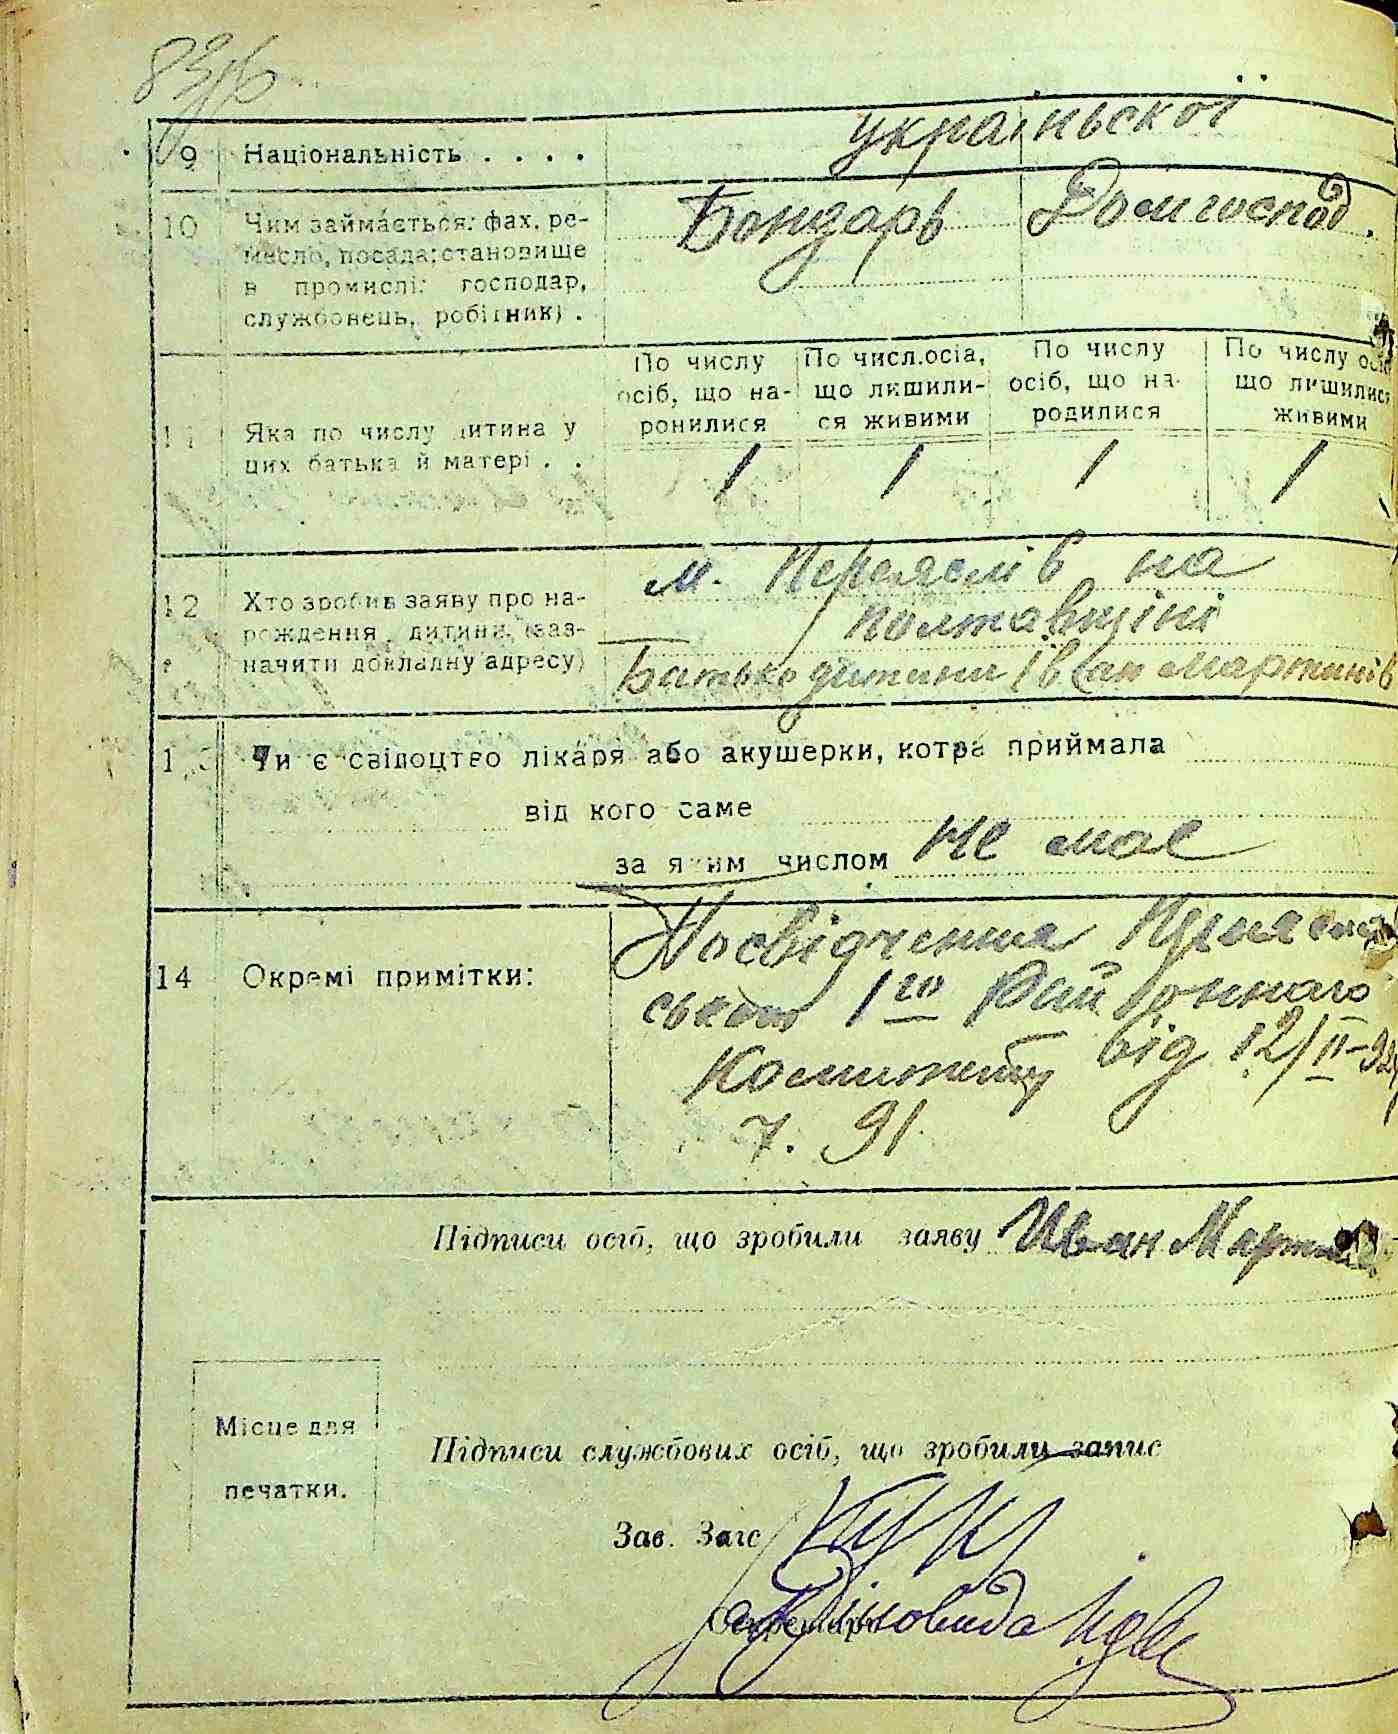 9 Національність . . . .
україньскої
10 Чим займається: фах, ре-
месло, посада; становище
в промислі: господар,
службовець, робітник) .
Бондарь Домгоспод.
По числу осіб, що на- ронилися
По числ.осіа, що лишили- ся живими
По числу осіб, що на- родилися
По числу осіб що лишилися живими
11 Яка по числу дитина у
цих батька й матері . .
1 1 1 1
12 Хто зробив заяву про на-
рождення дитини, (заз-
начити докладну адресу)
м. Переяслів на
Полтавщіні
Батько дитини Іван Мартинів
13 Чи є свідоцтво лікаря або акушерки, котра приймала
від кого саме
за яким числом не має
14 Окремі примітки:
Посвідчення Переяслав
ського 1го Рай оннаго
Комитету від 12/II-92
ч. 91
Підписи осіб, що зробили заяву Иван Мартинов
Місце для
печатки.
Підписи службових осіб, що зробили запис
Зав. Загс
Секретарь